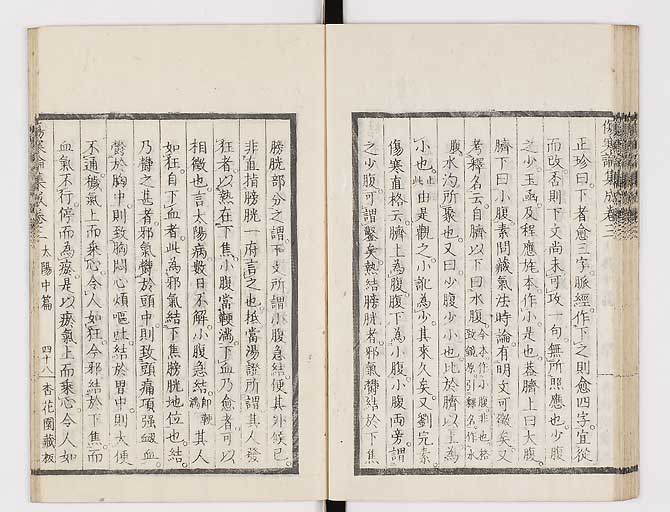 傷寒論集成卷三
正珍曰下者愈三字脈經作下之則愈四字宜從
而改否則下文尚未可攻一句無所照應也少腹
之少玉函及程應旄本作小是也蓋臍上曰大腹
臍下曰小腹素問藏氣法時論有明文可徵矣又
考釋名云自臍以下曰水腹今本作小腹非也格致鏡原引釋名作水
腹水汋所聚也又曰少腹少小也比於臍以上爲
小也止由是觀之小訛爲少其來久矣又劉完素
傷寒直格云臍上爲腹腹下爲小腹小腹兩旁謂
之少腹可謂鑿矣熱結膀胱者邪氣鬱結於下焦
膀胱部分之謂下文所謂小腹急結便其外候已
非直指膀胱一府言之也抵當湯證所謂其人發
狂者以熱在下焦小腹當鞕滿下血乃愈者可以
相徵也言太陽病數日不解小腹急結即鞕滿其人
如狂自下血者此爲邪氣結下焦膀胱地位也
乃鬱之甚者邪氣鬱於頭中則致頭痛項强衄血
鬱於胸中則致胸悶心煩嘔吐結於胃中則大便
不通穢氣上而乘心令人如狂今邪結於下焦而
血氣不行停而爲瘀是以瘀氣上而乘心令人如
傷寒論集成卷三 太陽中篇 四十八 杏花園藏板